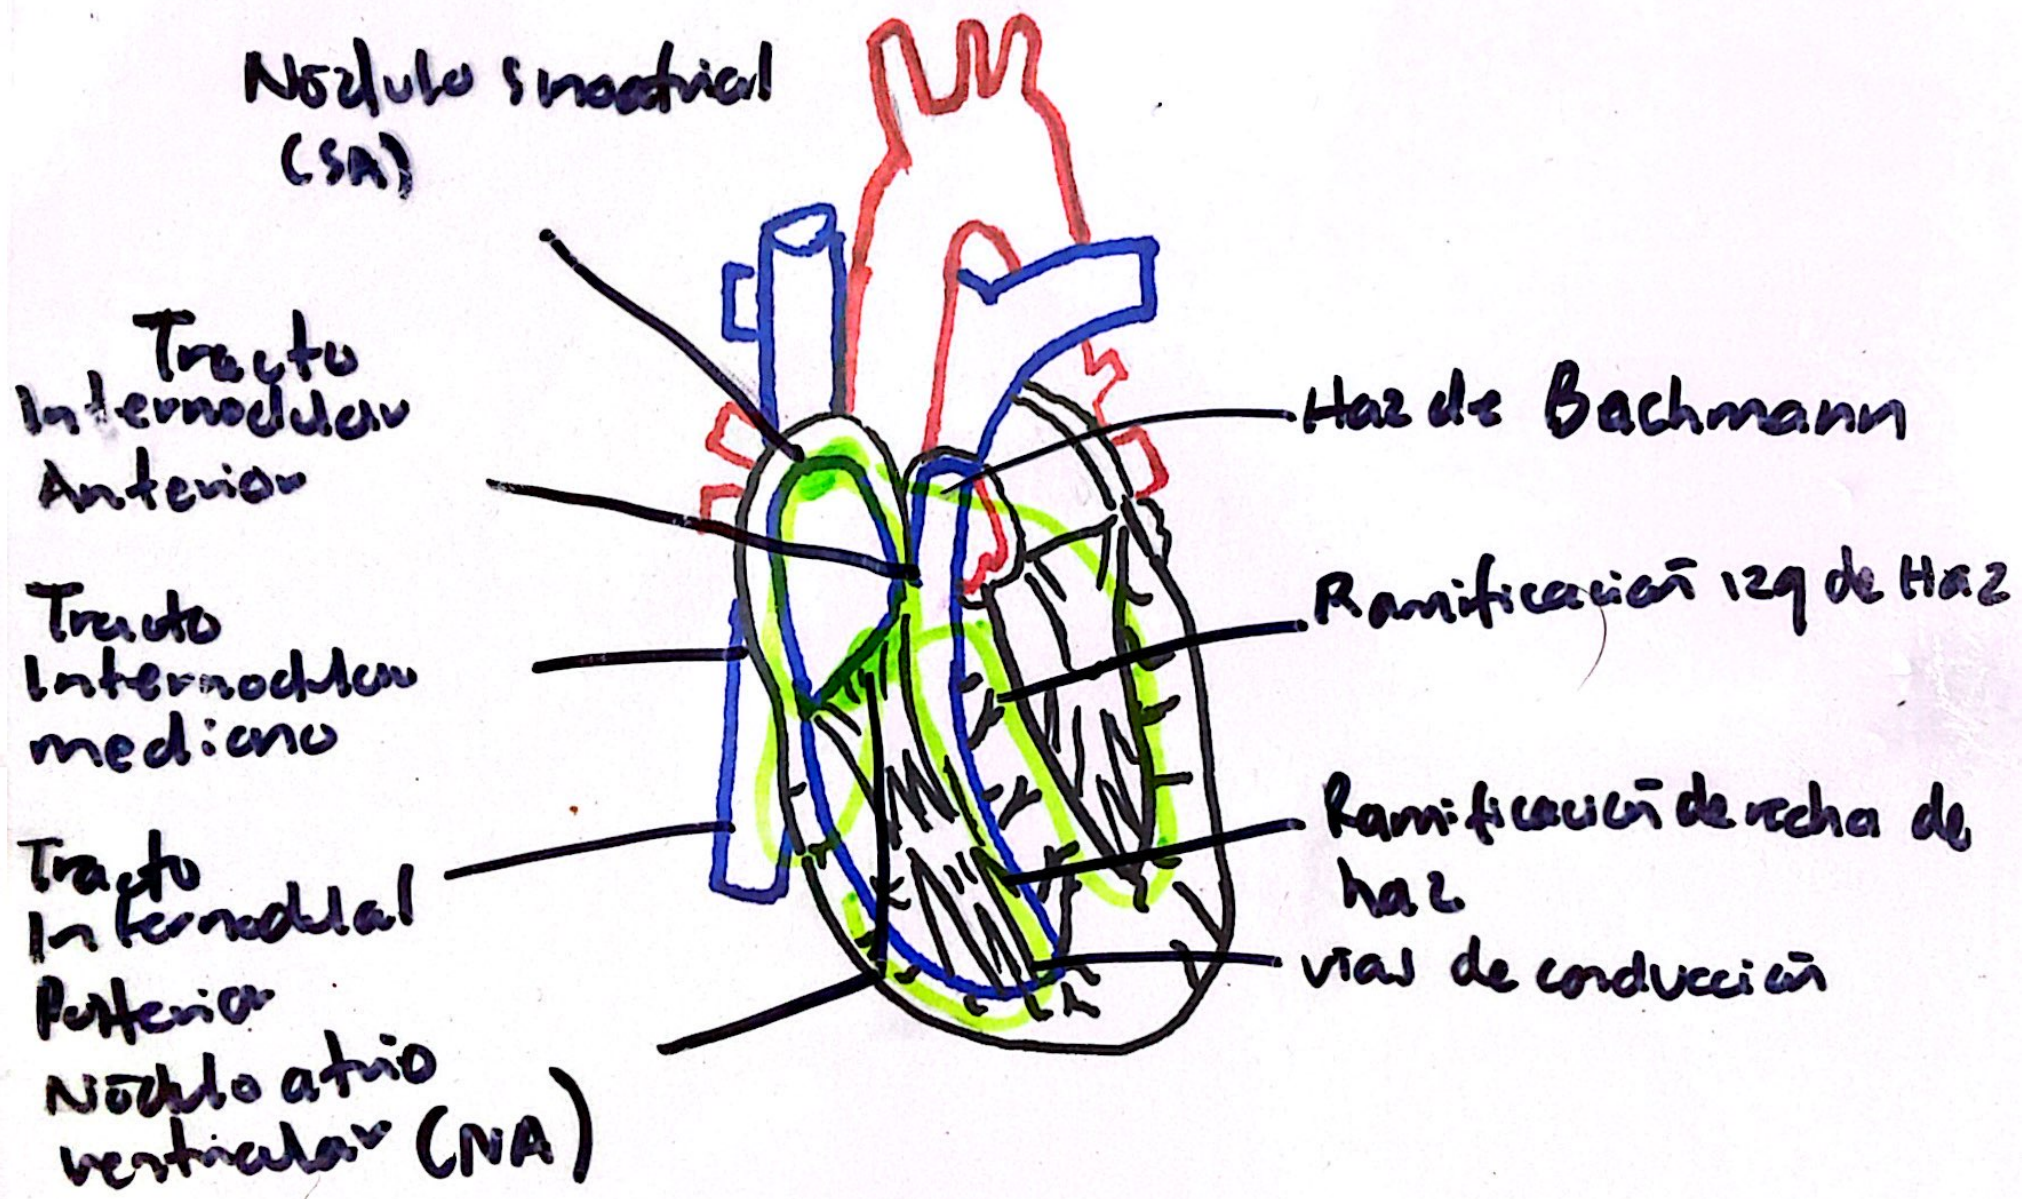 Nódulo sinoatrial
(SA)
Tracto
Internodular
Anterior
Tracto
Internodular
mediano
Tracto
Internodulal
Posterior
Nódulo atrio
ventricular (NA)
Haz de Bachmann
Ramificación izq de Haz
Ramificación derecha de
haz
vías de conducción